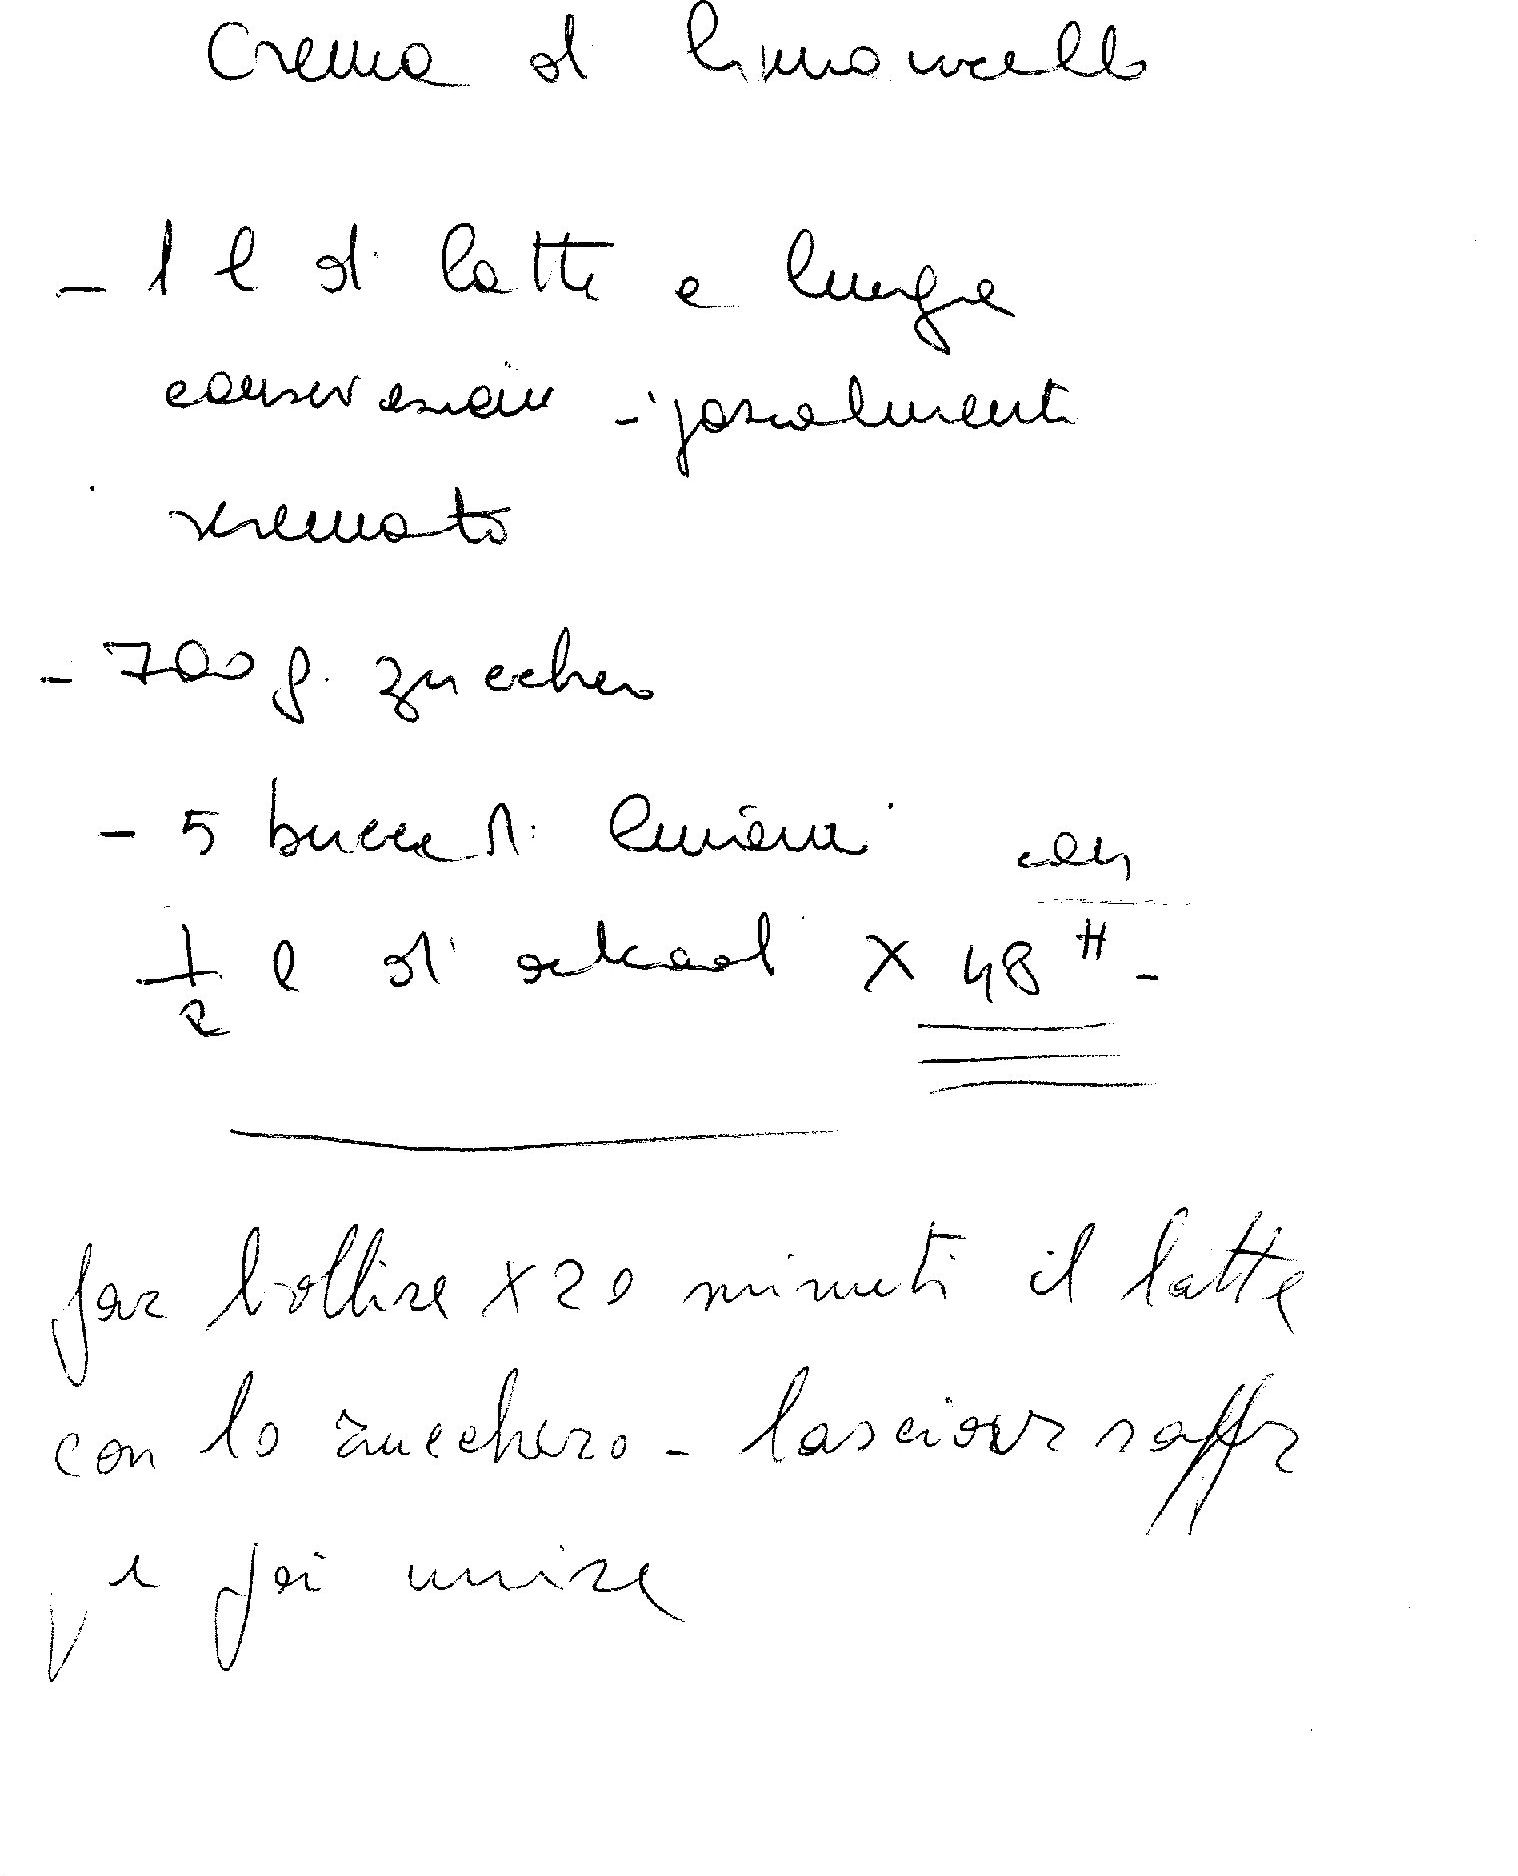 Crema di limoncello
- 1 l di latte a lunga
conservazione - parzialmente
scremato
- 700 g. zucchero
- 5 bucce di limoni con
1/2 l di alcool x 48 H -
far bollire x 20 minuti il latte
con lo zucchero - lasciar raffr
e poi unire